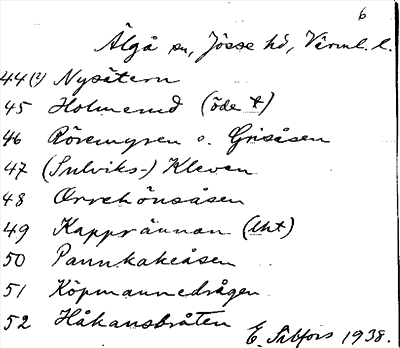 6
Älgå sn, Jösse hd, Värml. l.
44(?) Nysätern
45 Holmerud (öde t)
46 Röremyren o. Grisåsen
47 (Sulviks-) Kleven
48 Orrehönsåsen
49 Kapprännan (lht)
50 Pannkakeåsen
51 Köpmannedrågen
52 Håkansbråten
E. 1938.